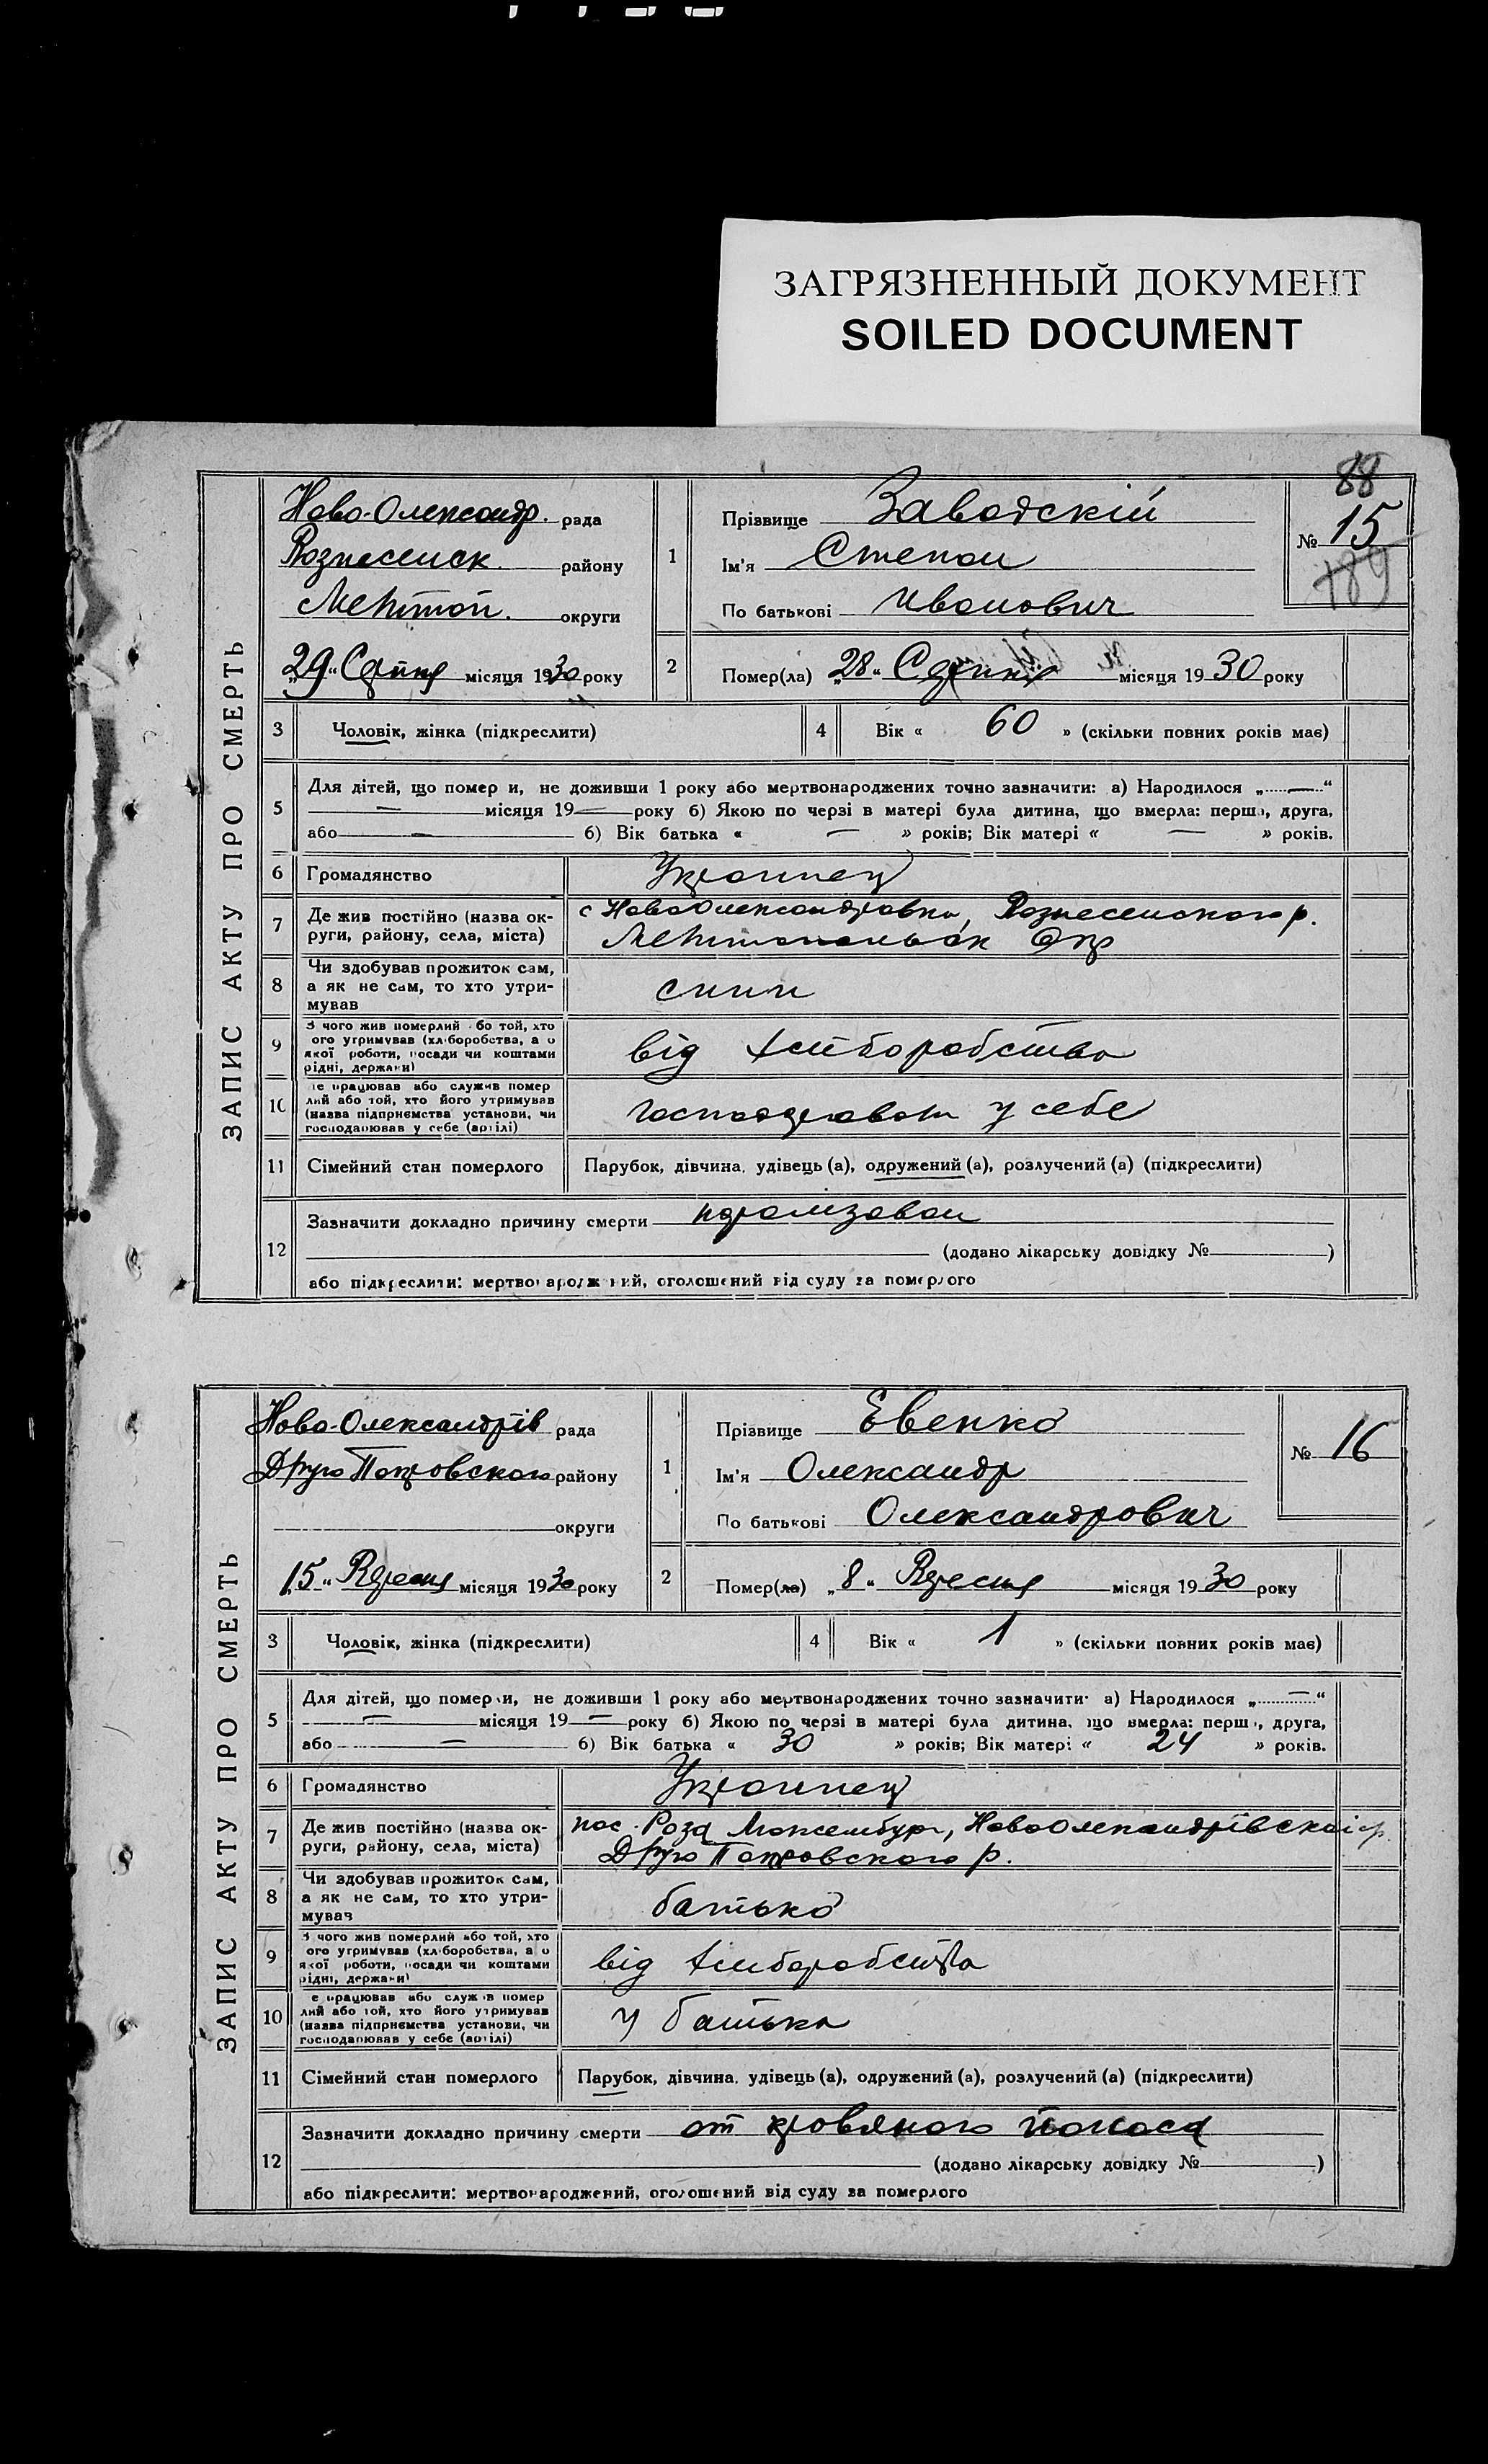 ЗАГРЯЗНЕННЫЙ ДОКУМЕНТ
SOILED DOCUMENT
88
ЗАПИС АКТУ ПРО СМЕРТЬ
Ново-Олександр. рада
Вознесенск района району
Мелітоп. округи
„29“ Серпня місяця 1930 року
1 Прізвище Заводскій
Ім'я Степан
По батькові Иванович
№ 15
189
2 Помер(ла) „28“ Серпня місяця 1930 року
3 Чоловік, жінка (підкреслити)
4 Вік « 60 » (скільки повних років має)
5 Для дітей, що помер и, не доживши 1 року або мертвонароджених точно зазначити: а) Народилося „ — “
— місяця 19 — року б) Якою по черзі в матері була дитина, що вмерла: перша, друга,
або — б) Вік батька « — » років; Вік матері « — » років.
6 Громадянство Украинец
7 Де жив постійно (назва ок-
руги, району, села, міста)
с НовоОлександровка, Вознесенского р.
Мелітопольск Окр
8 Чи здобував прожиток сам,
а як не сам, то хто утри-
мував
9 З чого жив померлий або той, хто
ого утримував (хліборобства, а о
якої роботи, посади чи коштами
рідні, держави)
від хліборобства
10 е працював або служив помер
лий або той, хто його утримував
(назва підприємства установи, чи
господарював у себе (артілі)
господарював у себе
11 Сімейний стан померлого Парубок, дівчина, удівець (а), одружений (а), розлучений (а) (підкреслити)
12 Зазначити докладно причину смерти паралізован
(додано лікарську довідку № )
або підкреслити: мертвонароджений, оголошений від суду за померлого
ЗАПИС АКТУ ПРО СМЕРТЬ
Ново-Олександрів рада
Друго Покровского району
округи
„15“ Вересня місяця 1930 року
1 Прізвище Евенко
Ім'я Олександр
По батькові Олександрович
№ 16
2 Помер(ла) „8“ Вересня місяця 1930 року
3 Чоловік, жінка (підкреслити)
4 Вік « 1 » (скільки повних років має)
5 Для дітей, що померли, не доживши 1 року або мертвонароджених точно зазначити: а) Народилося „ — “
— місяця 19 — року б) Якою по черзі в матері була дитина, що вмерла: перша, друга,
або — б) Вік батька « 30 » років; Вік матері « 24 » років.
6 Громадянство Украинец
7 Де жив постійно (назва ок-
руги, району, села, міста)
пос. Роза Люксембург, НовоОлександрівскоі с/р.
Друго Покровского р.
8 Чи здобував прожиток сам,
а як не сам, то хто утри-
мував
батько
9 З чого жив померлий або той, хто
ого утримував (хліборобства, а о
якої роботи, посади чи коштами
рідні, держави)
від хліборобства
10 е працював або служив помер
лий або той, хто його утримував
(назва підприємства установи, чи
господарював у себе (артілі)
у батька
11 Сімейний стан померлого Парубок, дівчина, удівець (а), одружений (а), розлучений (а) (підкреслити)
12 Зазначити докладно причину смерти от кровяного поноса
(додано лікарську довідку № )
або підкреслити: мертвонароджений, оголошений від суду за померлого